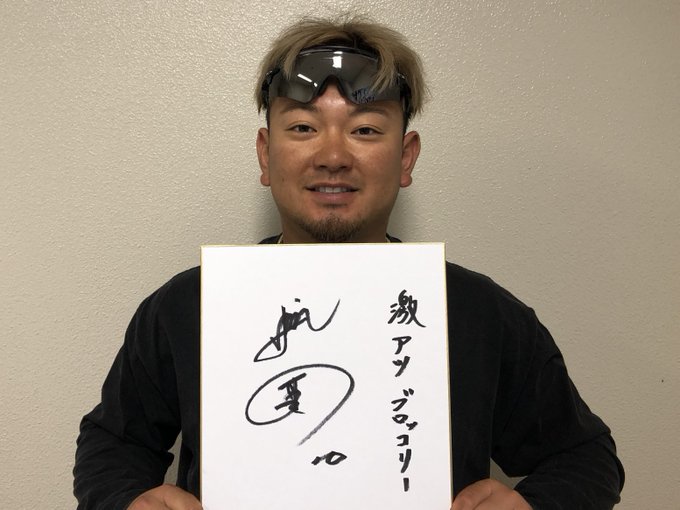 激アツ ブロッコリー
10